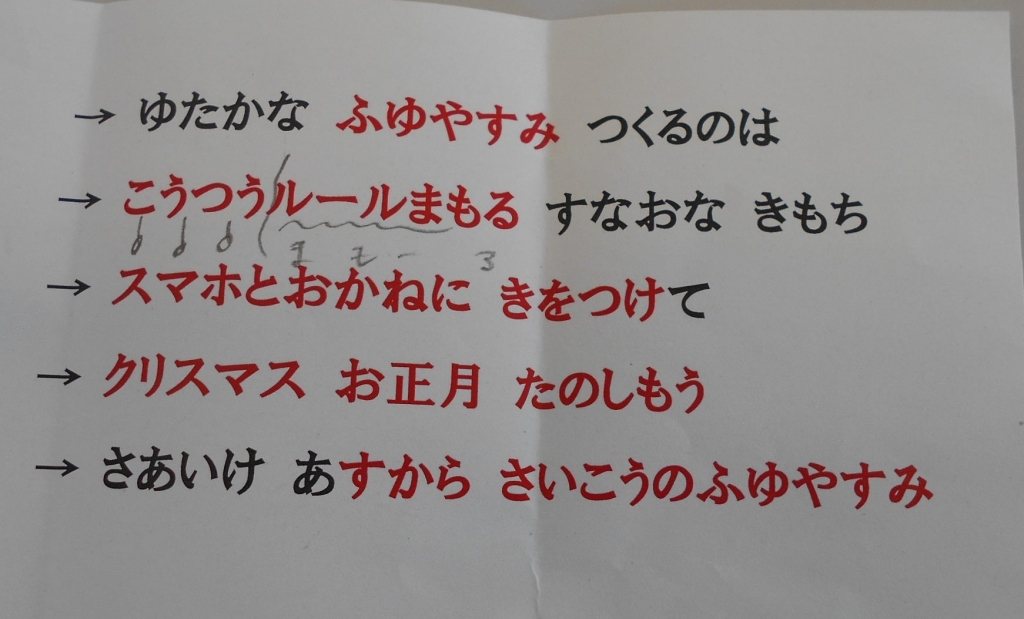 → ゆたかな ふゆやすみ つくるのは
→ こうつうルールまもる すなおな きもち
ま も ー る
→ スマホとおかねに きをつけて
→ クリスマス お正月 たのしもう
→ さあいけ あすから さいこうのふゆやすみ